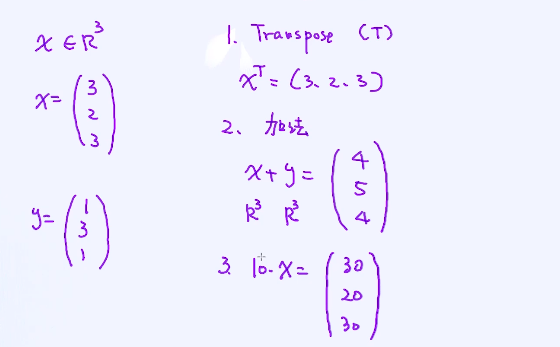 x ∈ R³
x = (3
2
3)
y = (1
3
1)
1. Transpose (T)
xᵀ = (3、2、3)
2、 加法
x + y = (4
5
4)
R³ R³
3. 10·x = (30
20
30)